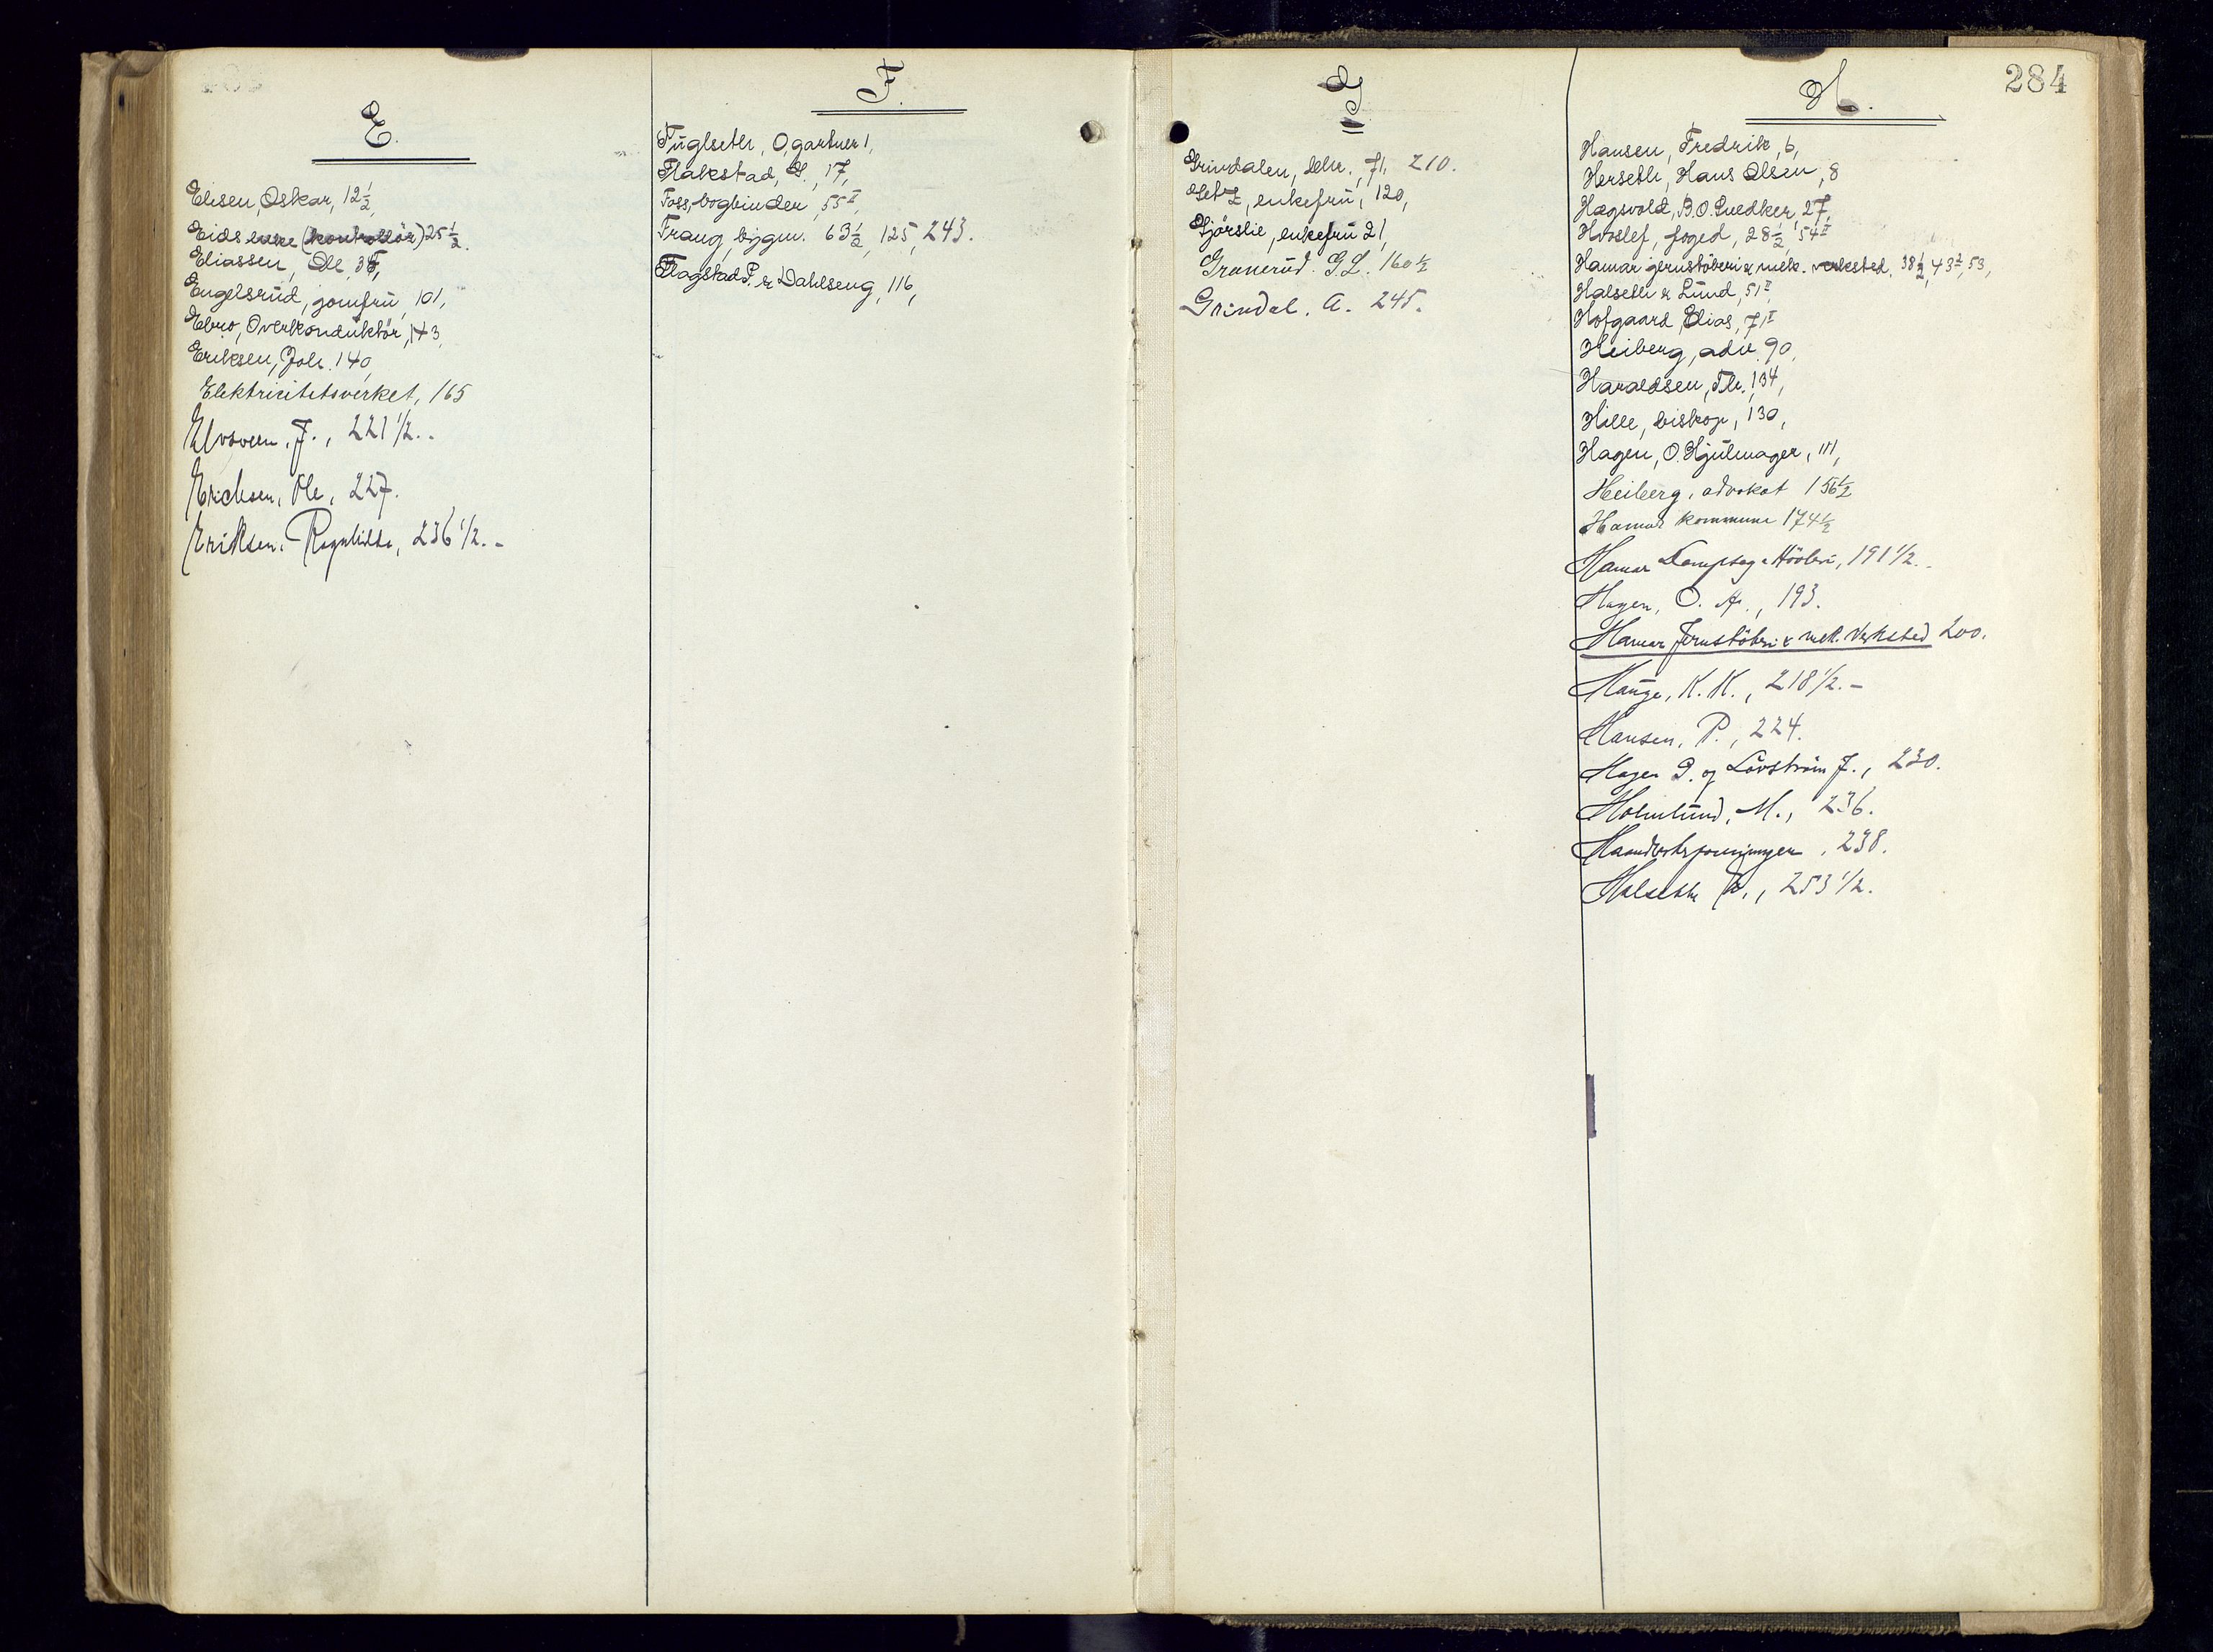 E.
Elisen, Oskar, 12 1/2,
Eids enke (kontrollör) 25 1/2.
Eliassen, Ole, 38,
Engelsrud, jomfru, 101,
Ebro, Overkonduktör, 143,
Eriksen, Joh. 140,
Elektricitetsverket, 165
Elvsveen, J., 221 1/2.
Erichsen, Ole, 227.
Eriksen, Ragnhilda, 236 1/2.
F.
Fuglseth, O, gartner 1,
Flakstad, G., 17,
Foss, bogbinder, 55 I,
Frang, bygm. 63 1/2, 125, 243.
Flagstad P. & Dahlseng, 116,
G
Grindalen, Mhr., 71, 210.
Getz, enkefru, 120,
Gjörslie, enkefru 21,
Grønerud. G.L. 160 1/2
Grindal. A. 245.
284
H.
Hansen, Fredrik, 6,
Herseth, Hans Olsen, 8
Hægsvold, B.O. Snedker, 27,
Hvoslef, foged, 28 1/2, 54 I
Hamar jernstöberi & mek. verksted, 38 1/2, 43 I, 53,
Halseth & Lund, 51 I,
Hofgaard, Elias, 71 I
Heiberg, adv. 90,
Haraldsen, Th., 134,
Hille, biskop, 130,
Hagen, O. Hjulmager, 111,
Heiberg, advokat 156 1/2
Hamar kommune 174 1/2
Hamar Dampsag & Hövleri, 191 1/2.
Hagen, O. A., 193.
Hamar Jernstöberi & mek. Verksted 200.
Hauge, K. K., 218 1/2.-
Hansen, P., 224.
Hagen D. og Lövström J., 230.
Holmlund, M., 236.
Haandverksforeningen, 238.
Halseth P., 253 1/2.